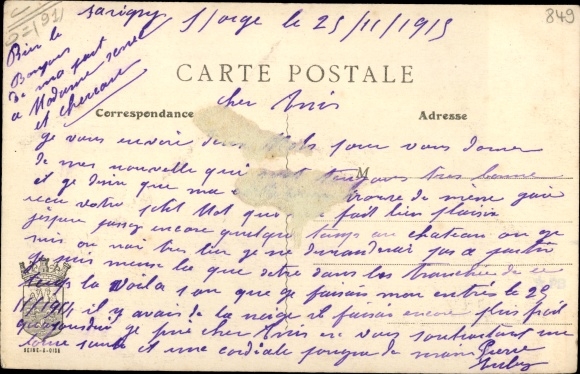 849
Savigny s/orge le 25/11/1915
Bien le
Bonjour
de ma part
a Madame
et
CARTE POSTALE
Correspondance
Adresse
cher Amis
je vous envoie deux Mots pour vous donner
de mes nouvelle qui sont toujours tres bonne
et je que ma trouve de même j'ai
recu votre petit Mot qui fait bien plaisir
passez encore quelque temps au chateau ou je
suis on nai tres bien je ne demanderai pas a partir
je suis mieux la que detre dans les tranchées de ce
temps la voila 1 an que je faisais mon entrés le 20
11 1914 il y avais de la neige il faisais encore plus froid
je cher Amis en vous souhaitant une
bonne santé et une cordiale poigne de main Pierre
M
SEINE-&-OISE